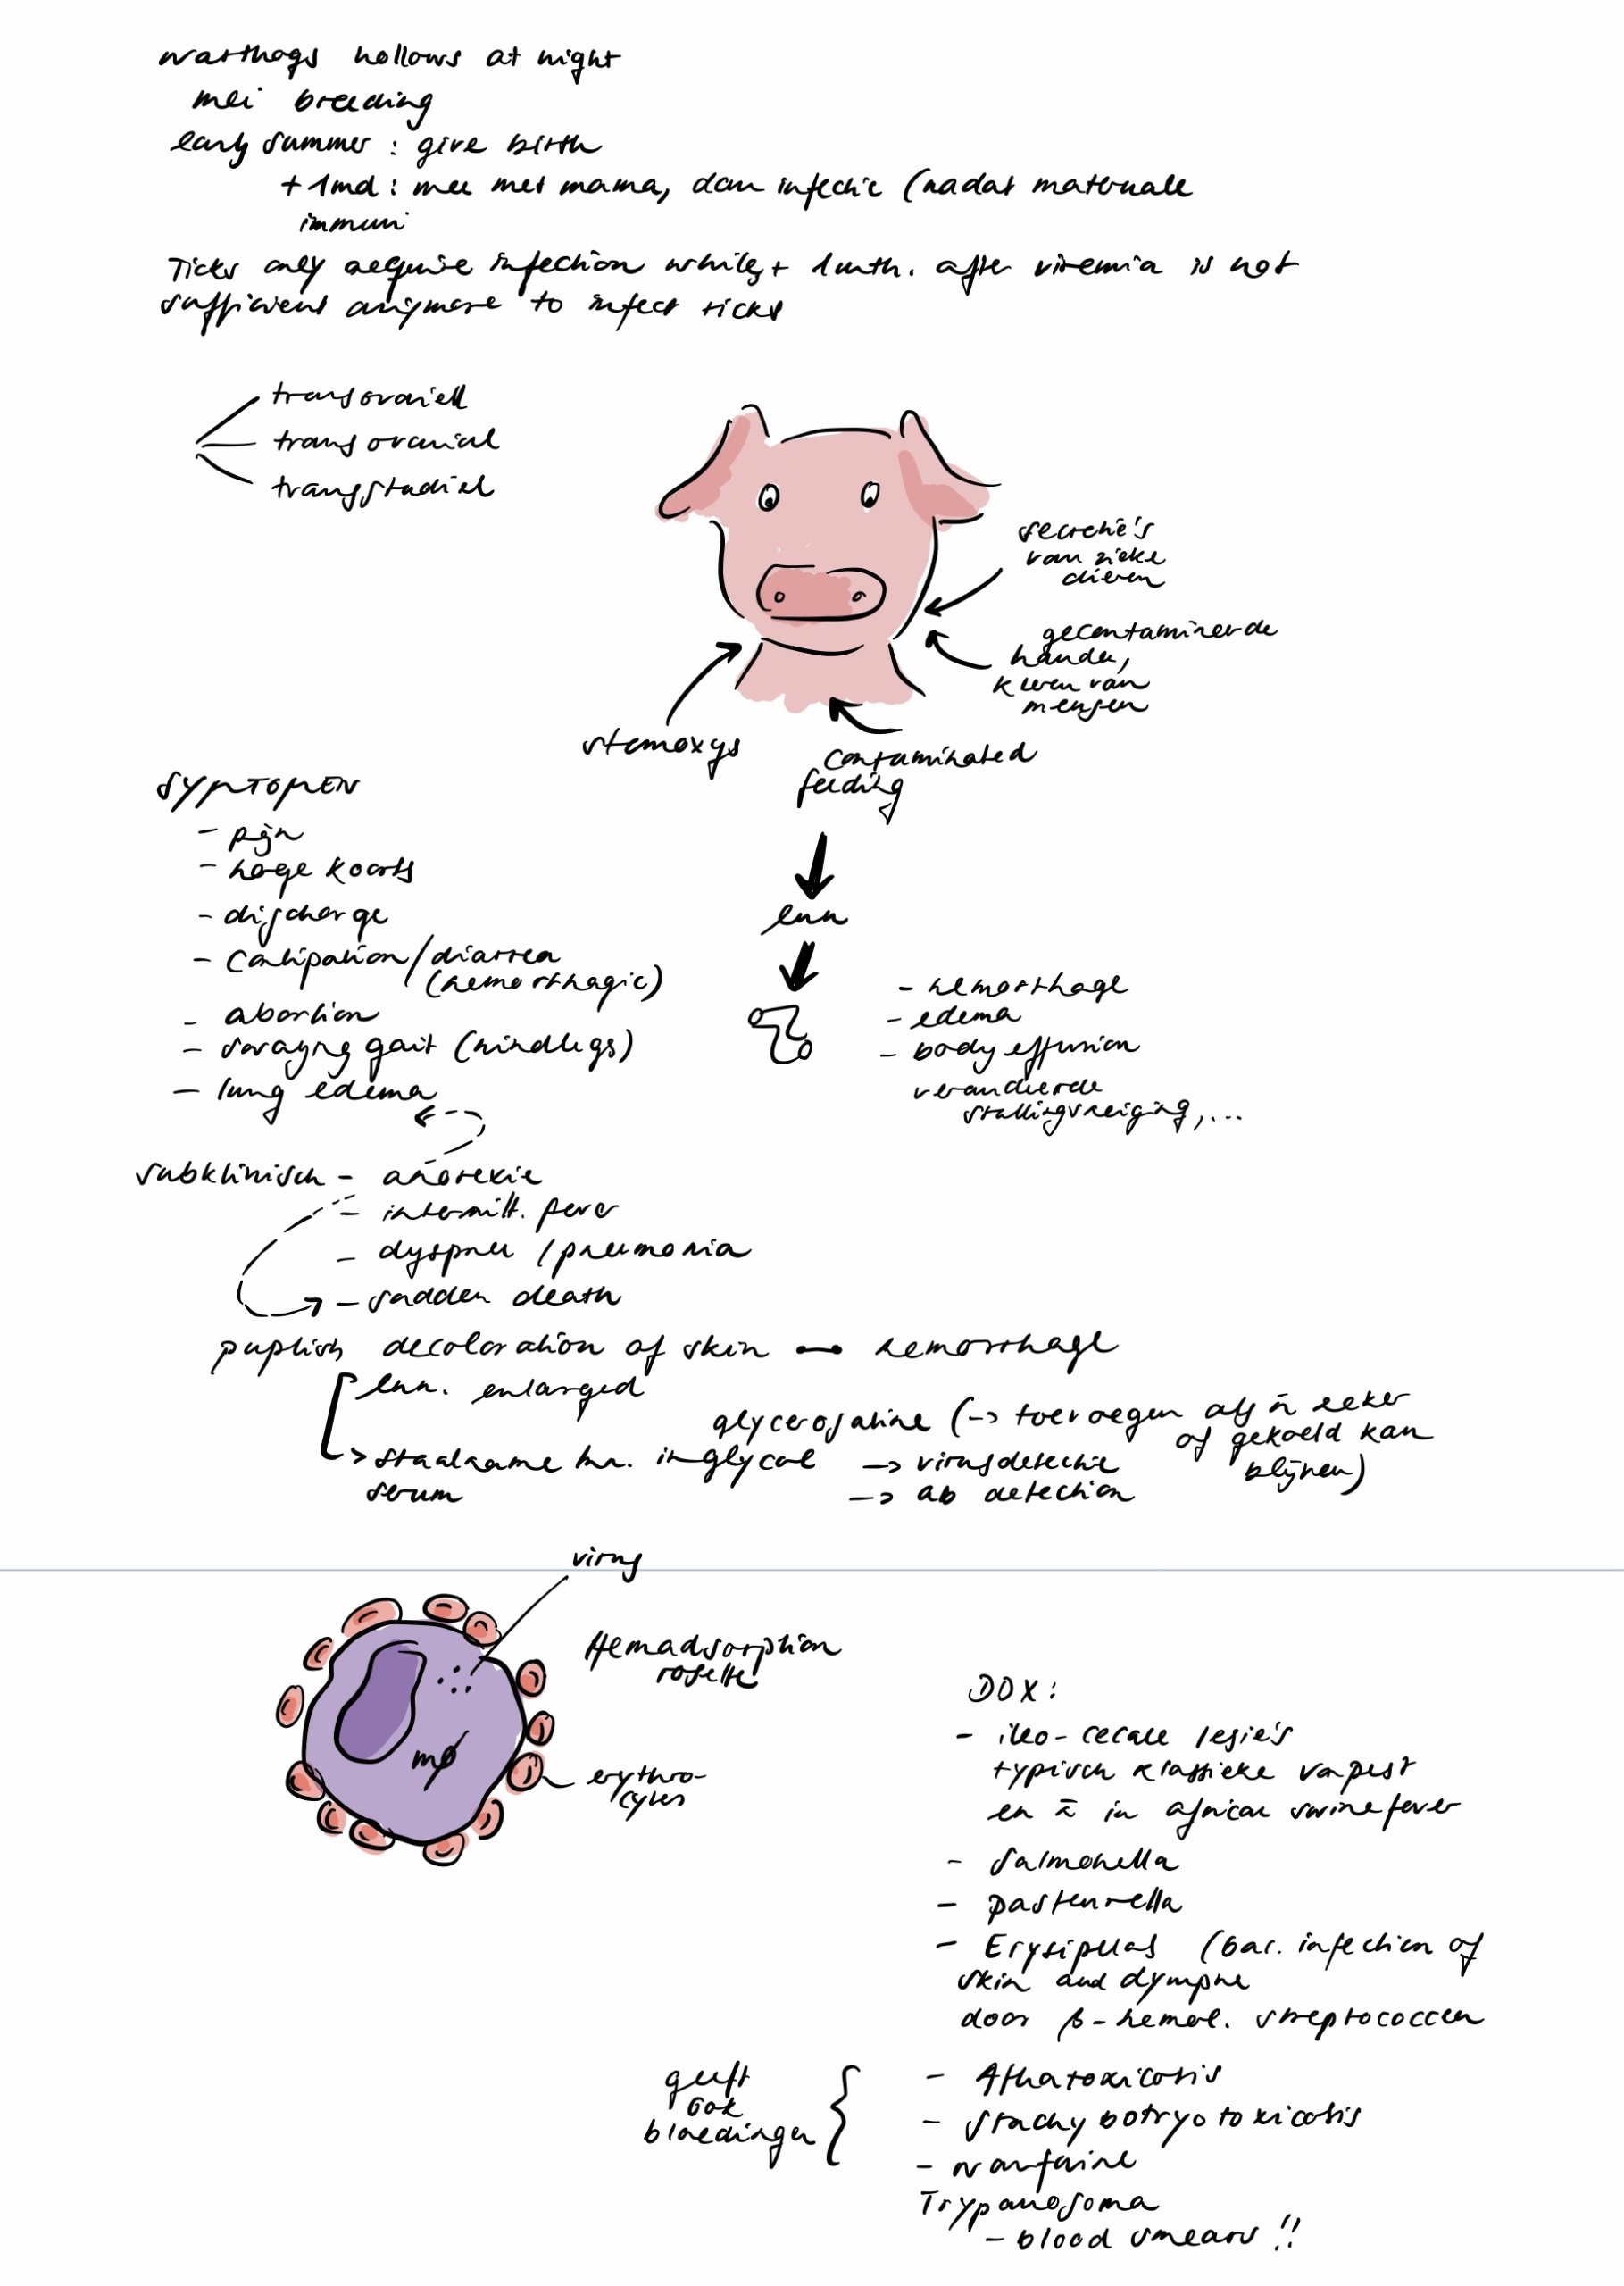 warthogs hollows at night
mei breeding
early summer : give birth
+ 1md : mee met mama, dan infectie (nadat maternale
immuni
Ticks only acquire infection while + 1mth. after viremia is not
sufficient anymore to infect ticks
transovarieell
trans ovarial
transstadiel
secretie's
van zieke
dieren
gecontamineerde
handen,
kleren van
mensen
stomoxys
contaminated
feeding
SYMPTOMEN
- pijn
- hoge koorts
- discharge
- Constipation / diarrea
(hemorrhagic)
- abortion
- swaying gait (hindlegs)
- lung edema
lnn
- hemorrhage
- edema
- body effusion
veranderde
stollingsneiging, ...
subklinisch - anorexie
- intermitt. fever
- dyspneu / pneumonia
- sudden death
puplish decoloration of skin hemorrhage
lnn. enlarged
glycerosaline (-> toevoegen als n̄ zeker
of gekoeld kan
blijven)
-> staalname lnn. in glycol -> virusdetectie
serum -> ab detection
virus
Hemadsorption
rosette
mφ
erythro-
cytes
DDX :
- ileo-cecale lesie's
typisch klassieke varpest
en n̄ in african swine fever
- Salmonella
- pasteurella
- Erysipelas (bac. infection of
skin and dymphe
door β-hemol. streptococcen
geeft
ook
bloedingen
- Aflatoxicosis
- stachybotryotoxicosis
- warfarine
Trypanosoma
- blood smears !!